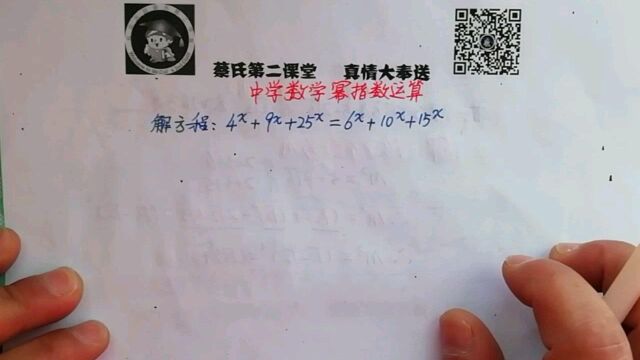 蔡氏第二课堂 真情大奉送
中学数学幂指数运算
解方程: 4ˣ+9ˣ+25ˣ=6ˣ+10ˣ+15ˣ